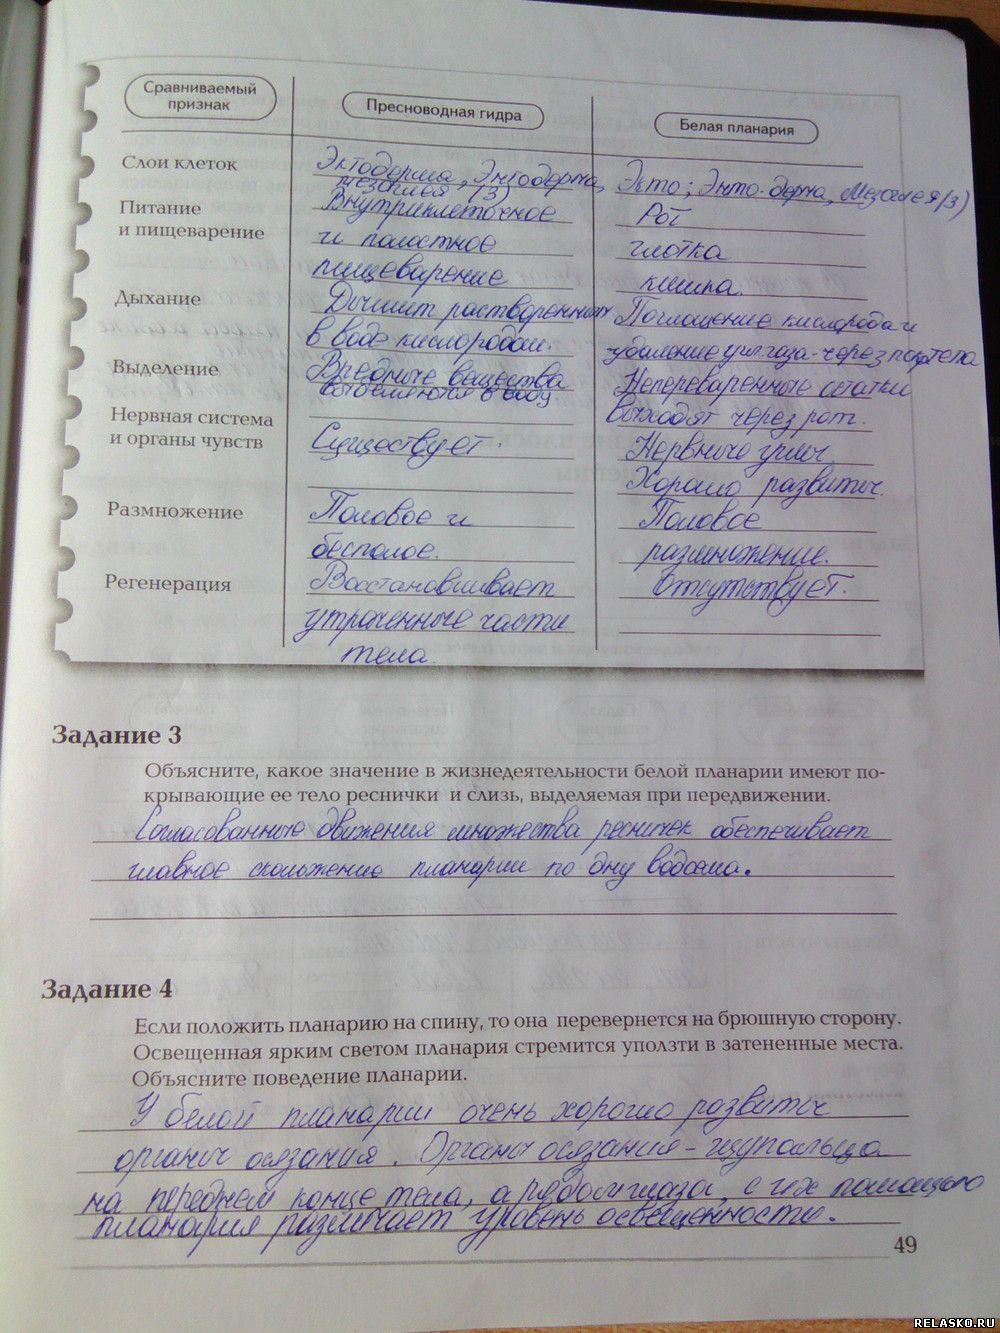 Сравниваемый признак
Пресноводная гидра
Белая планария
Слои клеток
Эктодерма, Энтодерма,
мезоглея (3)
Экто; Энто-дерма, Мезоглея(3)
Питание
и пищеварение
Внутриклеточное
и полостное
пищеварение
Рот
глотка
кишка.
Дыхание
Дышит растворенным
в воде кислородом.
Поглощение кислорода и
удаление угл.газа-через пов. тела
Выделение
Вредные вещества
выделяются в воду
Непереваренные остатки
выходят через рот.
Нервная система
и органы чувств
Существует.
Нервные узлы
Хорошо развиты.
Размножение
Половое и
бесполое.
Половое
размножение.
Регенерация
Восстанавливает
утраченные части
тела.
Отсутствует.
Задание 3
Объясните, какое значение в жизнедеятельности белой планарии имеют по-
крывающие ее тело реснички и слизь, выделяемая при передвижении.
Согласованные движения множества ресничек обеспечивает
главное скольжение планарии по дну водоема.
Задание 4
Если положить планарию на спину, то она перевернется на брюшную сторону.
Освещенная ярким светом планария стремится уползти в затененные места.
Объясните поведение планарии.
У белой планарии очень хорошо развиты
органы осязания. Органы осязания-щупальца
на переднем конце тела, а рядом глаза, с их помощью
планария различает уровень освещенности.
49
RELASKO.RU